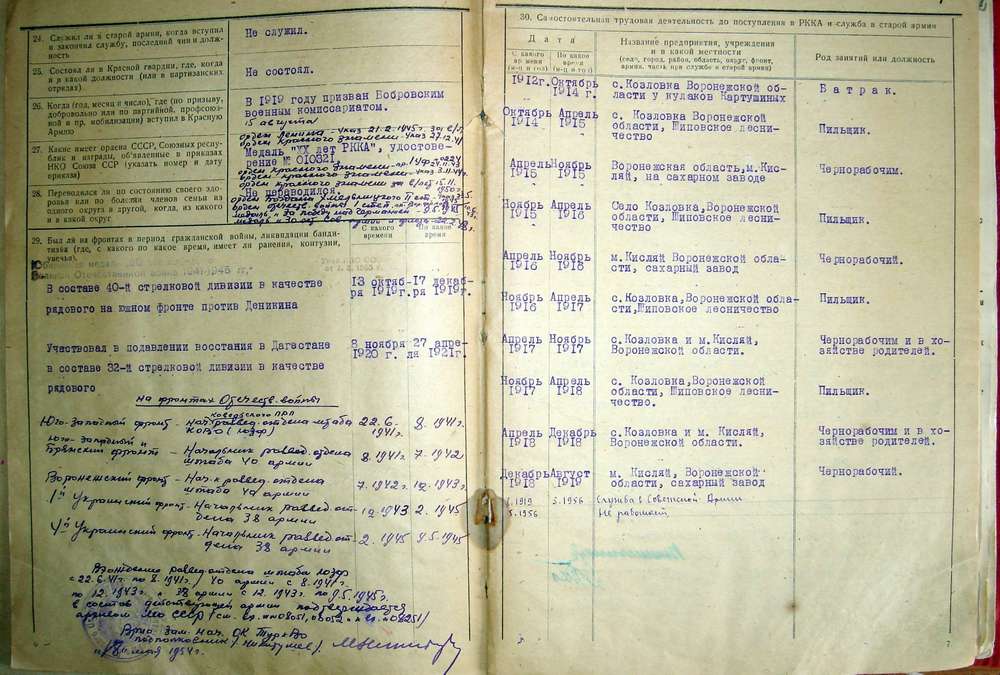 24. Служил ли в старой армии, когда вступил
и закончил службу, последний чин и долж-
ность
Не служил.
25. Состоял ли в Красной гвардии, где, когда
и в какой должности (или в партизанских
отрядах).
Не состоял.
26. Когда (год, месяц и число), где (по призыву,
добровольно или по партийной, профсоюз-
ной и пр. мобилизации) вступил в Красную
Армию
В 1919 году призван Бобровским
военным комиссариатом.
15 августа
27. Какие имеет ордена СССР, Союзных респуб-
лик и награды, об'явленные в приказах
НКО Союза ССР (указать номер и дату
приказа)
орден Ленина - указ 21.2.1945г.
орден Красного знамени - указ 27.12.41
Медаль "ХХ лет РККА", удостове-
рение № 010321
орден красного знамени
орден красного знамени
орден красного знамени
28. Переводился ли по состоянию своего здо-
ровья или по болезни членов семьи из
одного округа в другой, когда, из какого
и в какой округ
Не переводился.
орден Богдана Хмельницкого II ст.
орден отечеств. войны 1 степ.
медаль "За победу над Германией"
29. Был ли на фронтах в период гражданской войны, ликвидации банди-
тизма (где, с какого по какое время, имеет ли ранения, контузии,
увечья).
С какого
времени
По какое
время
Великой Отечественной войне 1941-1945 гг."
В составе 40-й стрелковой дивизии в качестве
рядового на южном фронте против Деникина
13 октяб-
ря 1919г.
17 декаб-
ря 1919г.
Участвовал в подавлении восстания в Дагестане
в составе 32-й стрелковой дивизии в качестве
рядового
8 ноября
1920 г.
27 апре-
ля 1921г.
на фронтах Отечеств. войны
Юго-западный фронт - Нач. развед. отдела штаба
КОВО (ЮЗФ)
22.6-
1941г.
8.1941г.
Юго-западный и
Брянский фронт - Начальник развед. отдела
штаба 40 армии
8.1941г
7.1942
Воронежский фронт - Нач-к развед. отдела
штаба 40 армии
7.1942г
12.1943г.
1й Украинский фронт - Начальник развед. от-
дела 38 армии
12.1943
2.1945
4й Украинский фронт - Начальник развед. от-
дела 38 армии
2.1945
9.5.1945
В должности развед. отдела штаба ЮЗФ
с 22.6.41г. по 8.1941г., 40 армии с 8.1941г.
по 12.1943г. и 38 армии с 12.1943г. по 9.5.1945г.
в составе действующей армии подтверждается
архивом МО СССР
Врио зам. нач. ОК ТуркВО
подполковник
"18" мая 1954г.
30. Самостоятельная трудовая деятельность до поступления в РККА и служба в старой армии
Дата
С какого
времени
(м-ц и год)
По какое
время
(м-ц и год)
Название предприятия, учреждения
и в какой местности
(село, город, район, область, округ, фронт,
армия, часть при службе в старой армии)
Род занятий или должность
1912г. Октябрь
1914 г.
с. Козловка Воронежской об-
ласти у кулаков Картушиных
Батрак.
Октябрь Апрель
1914 1915
с. Козловка, Воронежской
области, Шиповское лесни-
чество
Пильщик.
Апрель Ноябрь
1915 1915
Воронежская область,м.Кис-
ляй, на сахарном заводе
Чернорабочий.
Ноябрь Апрель
1915 1916
Село Козловка,Воронежской
области, Шиповское лесни-
чество
Пильщик.
Апрель Ноябрь
1916 1916
м.Кисляй Воронежской обла-
сти, сахарный завод
Чернорабочий.
Ноябрь Апрель
1916 1917
с.Козловка,Воронежской обла-
сти,Шиповское лесничество
Пильщик.
Апрель Ноябрь
1917 1917
с.Козловка и м.Кисляй,
Воронежской области.
Чернорабочим и в хо-
зяйстве родителей.
Ноябрь Апрель
1917 1918
с. Козловка,Воронежской
области, Шиповское лесни-
чество.
Пильщик.
Апрель Декабрь
1918 1918
с.Козловка и м. Кисляй,
Воронежской области.
Чернорабочим и в хо-
зяйстве родителей.
Декабрь Август
1918 1919
м. Кисляй, Воронежской
области, сахарный завод
Чернорабочий.
8.1919 5.1956 Служба в Советской Армии
5.1956 Не работает
7